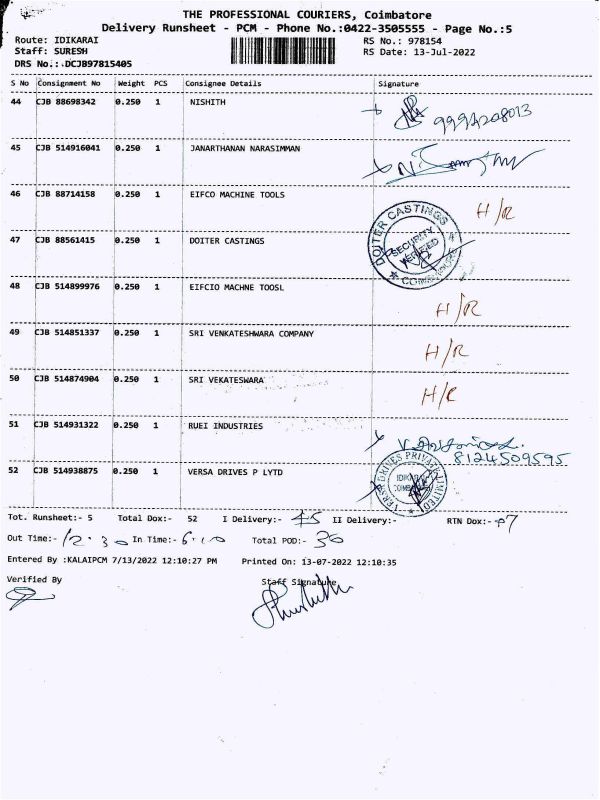 THE PROFESSIONAL COURIERS, Coimbatore
Delivery Runsheet - PCM - Phone No.:0422-3505555 - Page No.:5
Route: IDIKARAI RS No.: 978154
Staff: SURESH RS Date: 13-Jul-2022
DRS No.:.DCJB97815405
S No Consignment No Weight PCS Consignee Details Signature
44 CJB 88698342 0.250 1 NISHITH
45 CJB 514916041 0.250 1 JANARTHANAN NARASIMMAN
46 CJB 88714158 0.250 1 EIFCO MACHINE TOOLS H/R
47 CJB 88561415 0.250 1 DOITER CASTINGS
DOITER CASTINGS
SECURITY
VERIFIED
48 CJB 514899976 0.250 1 EIFCIO MACHNE TOOSL H/R
49 CJB 514851337 0.250 1 SRI VENKATESHWARA COMPANY H/R
50 CJB 514874904 0.250 1 SRI VEKATESWARA H/R
51 CJB 514931322 0.250 1 RUEI INDUSTRIES
8124509595
52 CJB 514938875 0.250 1 VERSA DRIVES P LYTD
VERSA DRIVES PRIVATE LIMITED
Tot. Runsheet:- 5 Total Dox:- 52 I Delivery:- 45 II Delivery:- RTN Dox:- 7
Out Time:- 12.30 In Time:- 6.10 Total POD:- 30
Entered By :KALAIPCM 7/13/2022 12:10:27 PM Printed On: 13-07-2022 12:10:35
Verified By Staff Signature